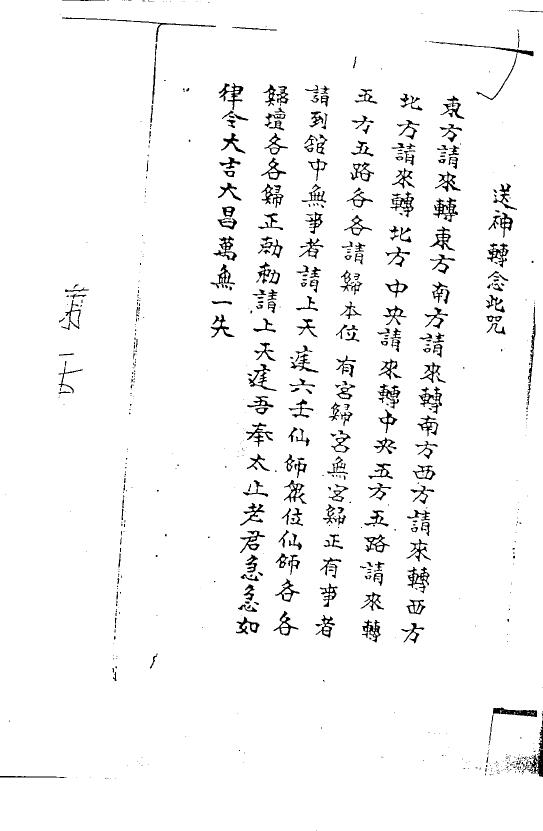 送神轉念此咒
東方請來轉東方南方請來轉南方西方請來轉西方
北方請來轉北方中央請來轉中央五方五路請來轉
五方五路各各請歸本位有宮歸宮無宮歸正有事者
請到舘中無事者請上天遑六壬仙師眾位仙師各各
歸壇各各歸正勅勅請上天遑吾奉太上老君急急如
律令大吉大昌萬無一失